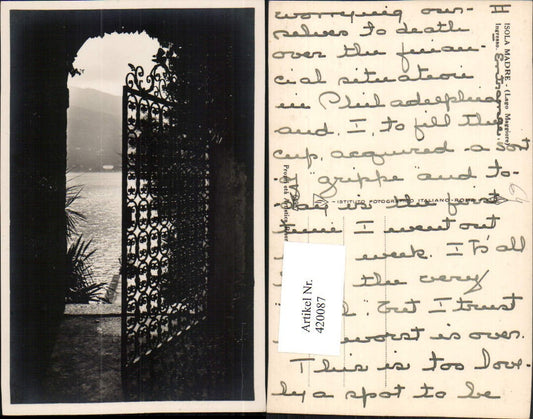 II
worrying our-
selves to death
over the finan-
cial situation
in Philadelphia
and I, to fill the
cup, acquired a sort
of grippe and to-
day is the first
time I went out
week. It's all
the very
but I trust
worst is over.
This is too love-
ly a spot to be
ISOLA MADRE - (Lago Maggiore)
Ingresso.
Entrance.
ISTITUTO FOTOGRAFICO ITALIANO - ROMA
64
Artikel Nr.
420087